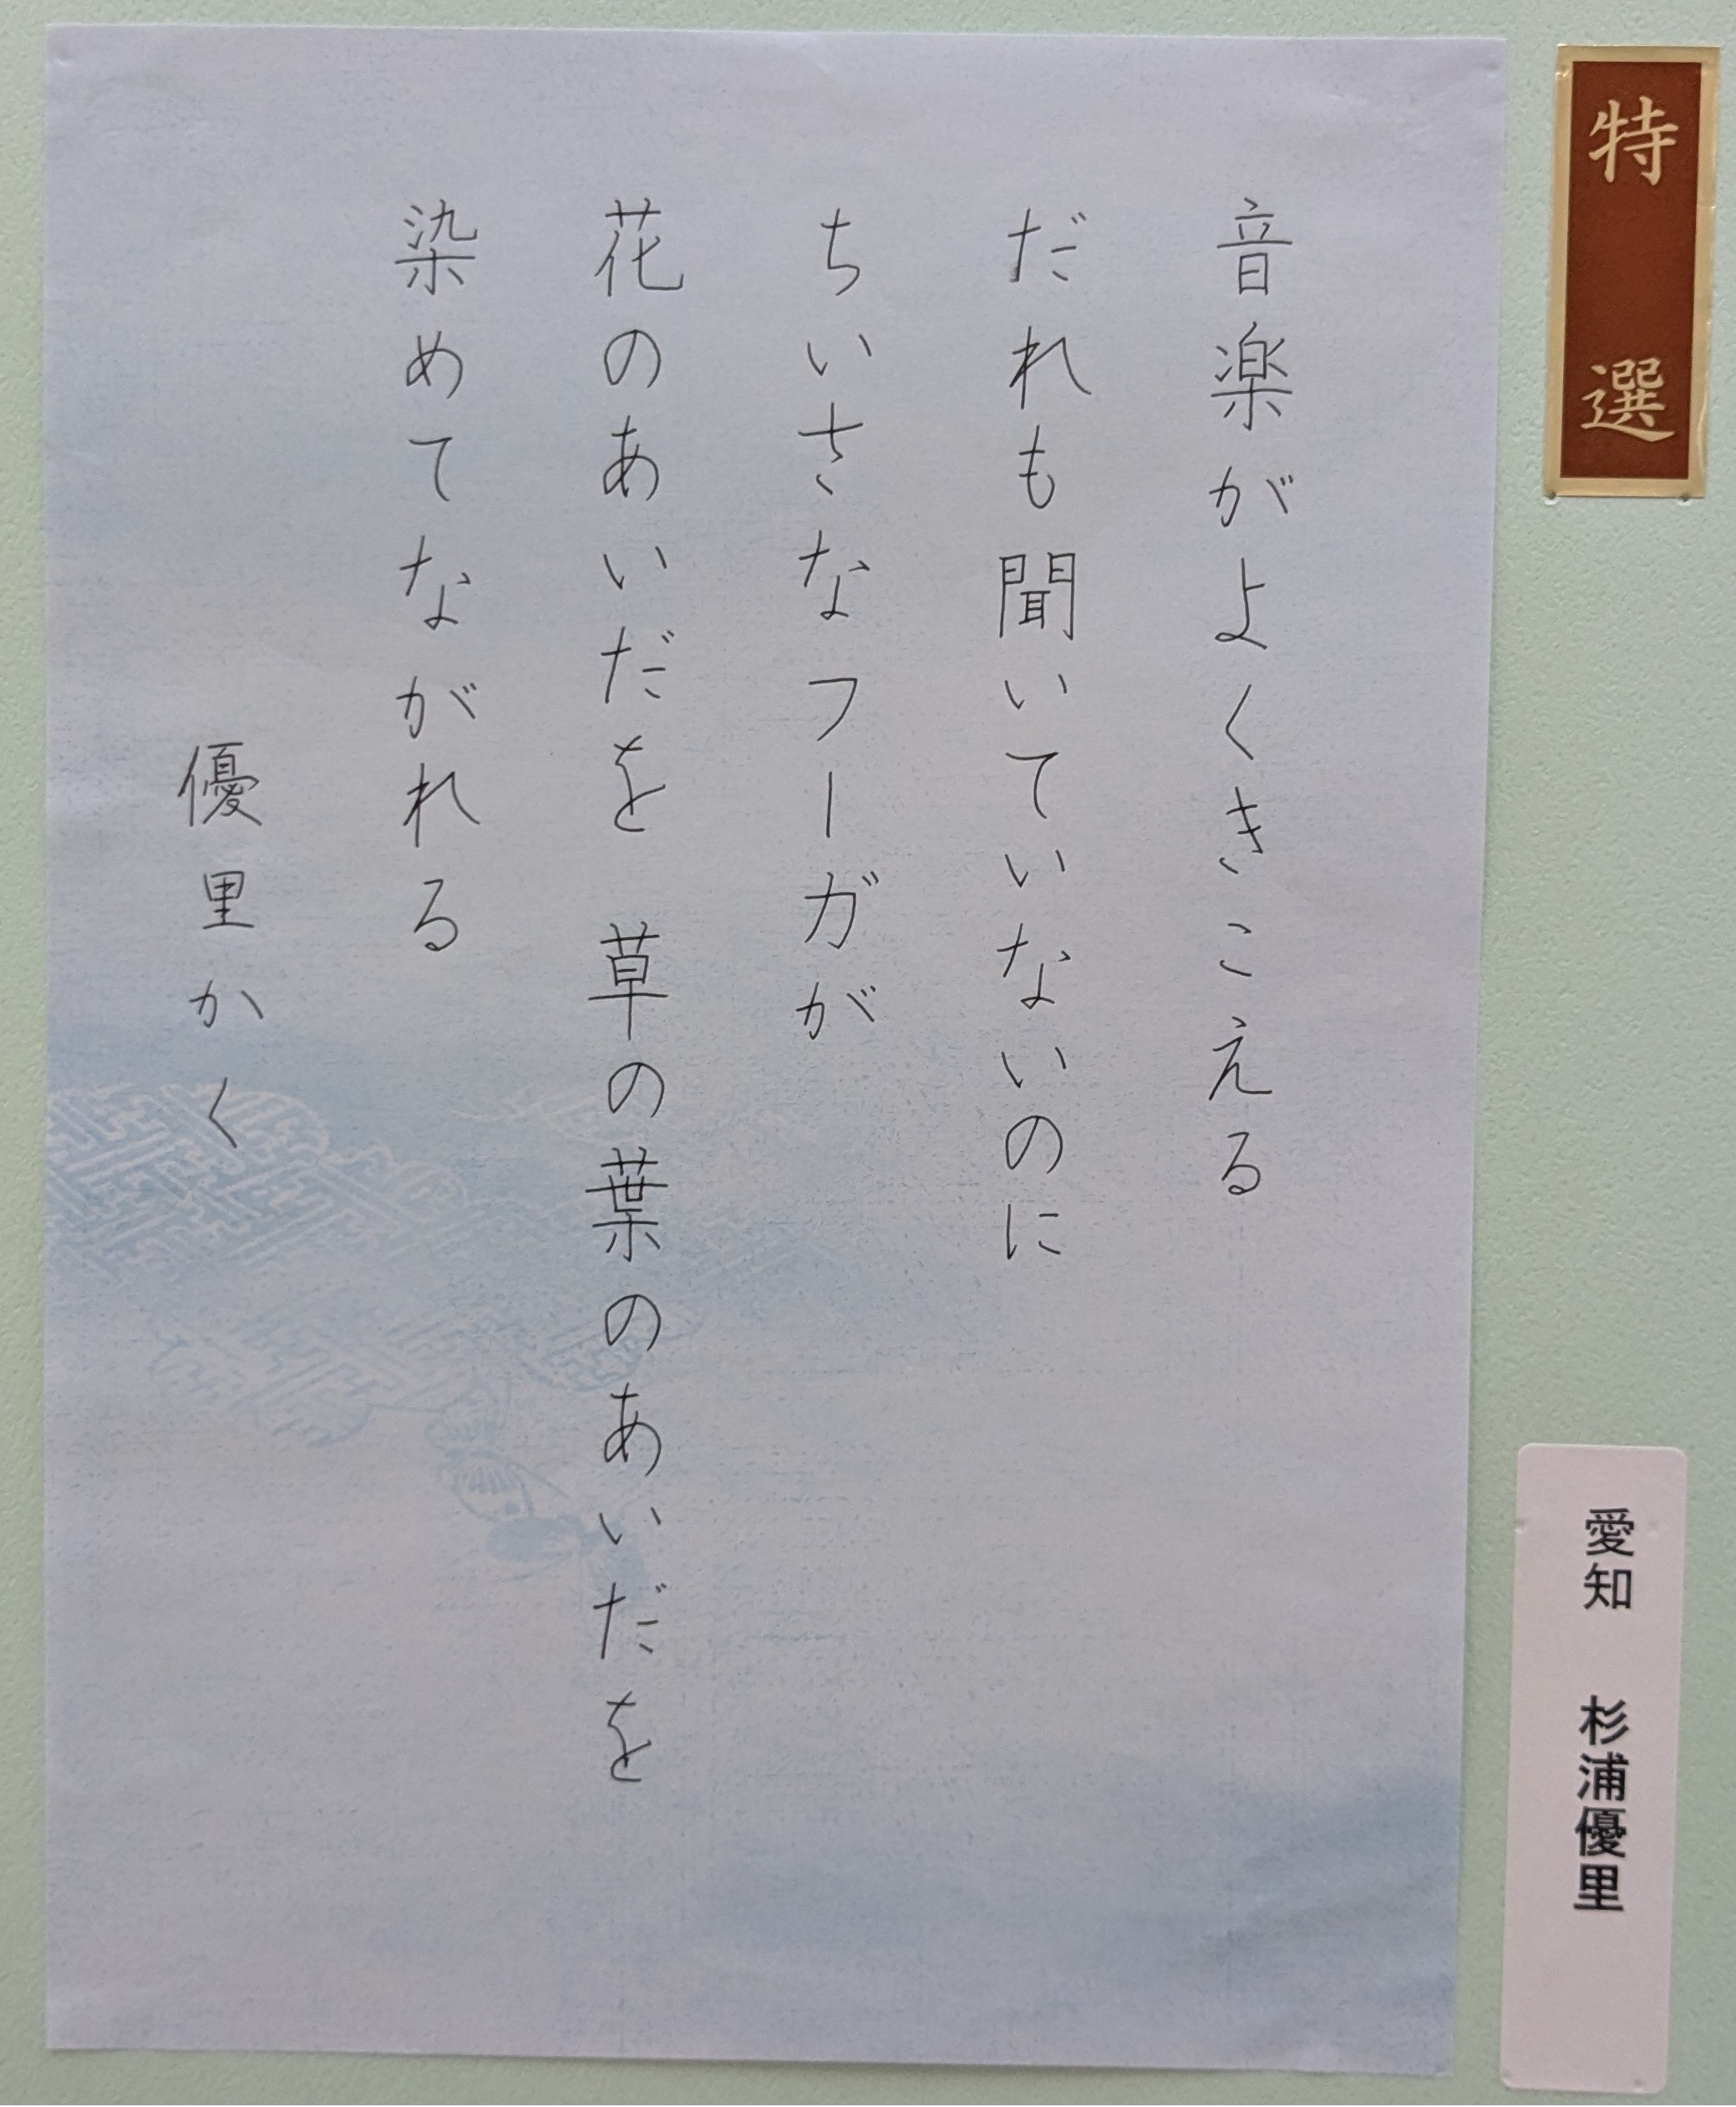 特選
音楽がよくきこえる
だれも聞いていないのに
ちいさなフーガが
花のあいだを 草の葉のあいだを
染めてながれる
優里かく
愛知 杉浦優里